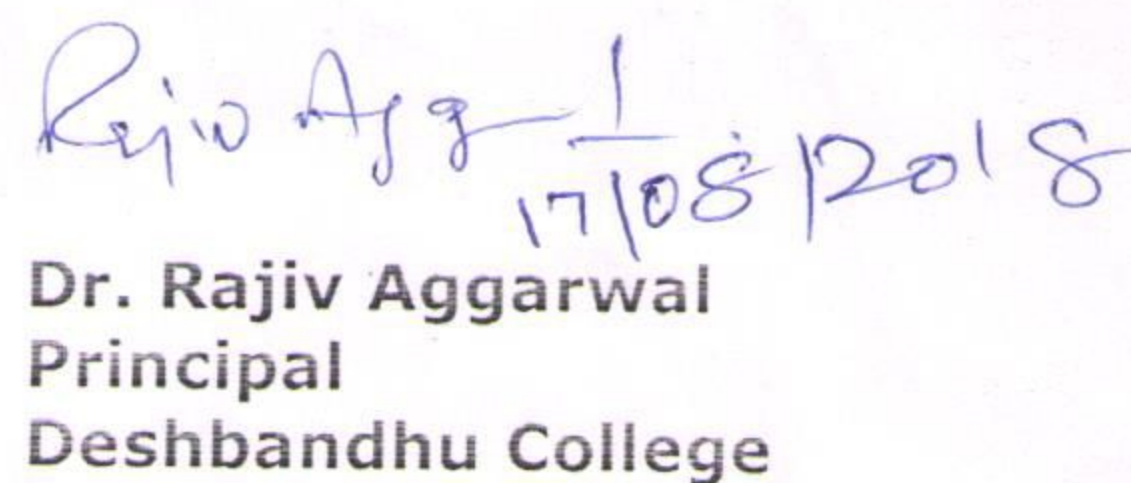 Rajiv Agg
17/08/2018
Dr. Rajiv Aggarwal
Principal
Deshbandhu College